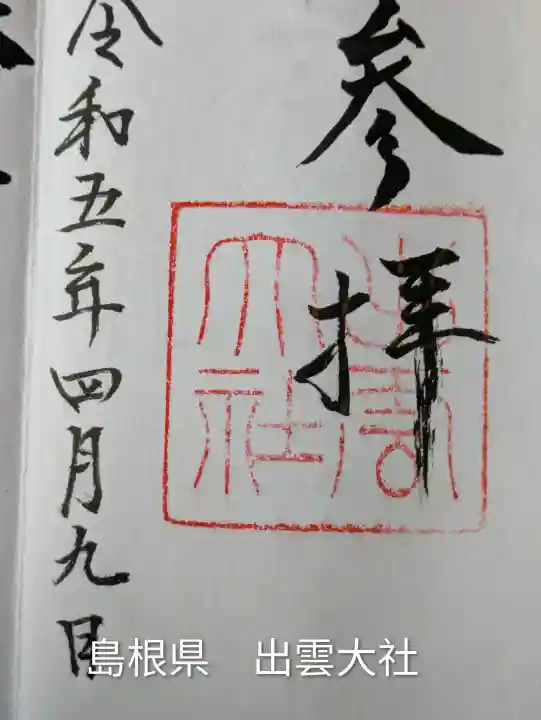 参拝
出雲
大社
令和五年四月九日
島根県　出雲大社